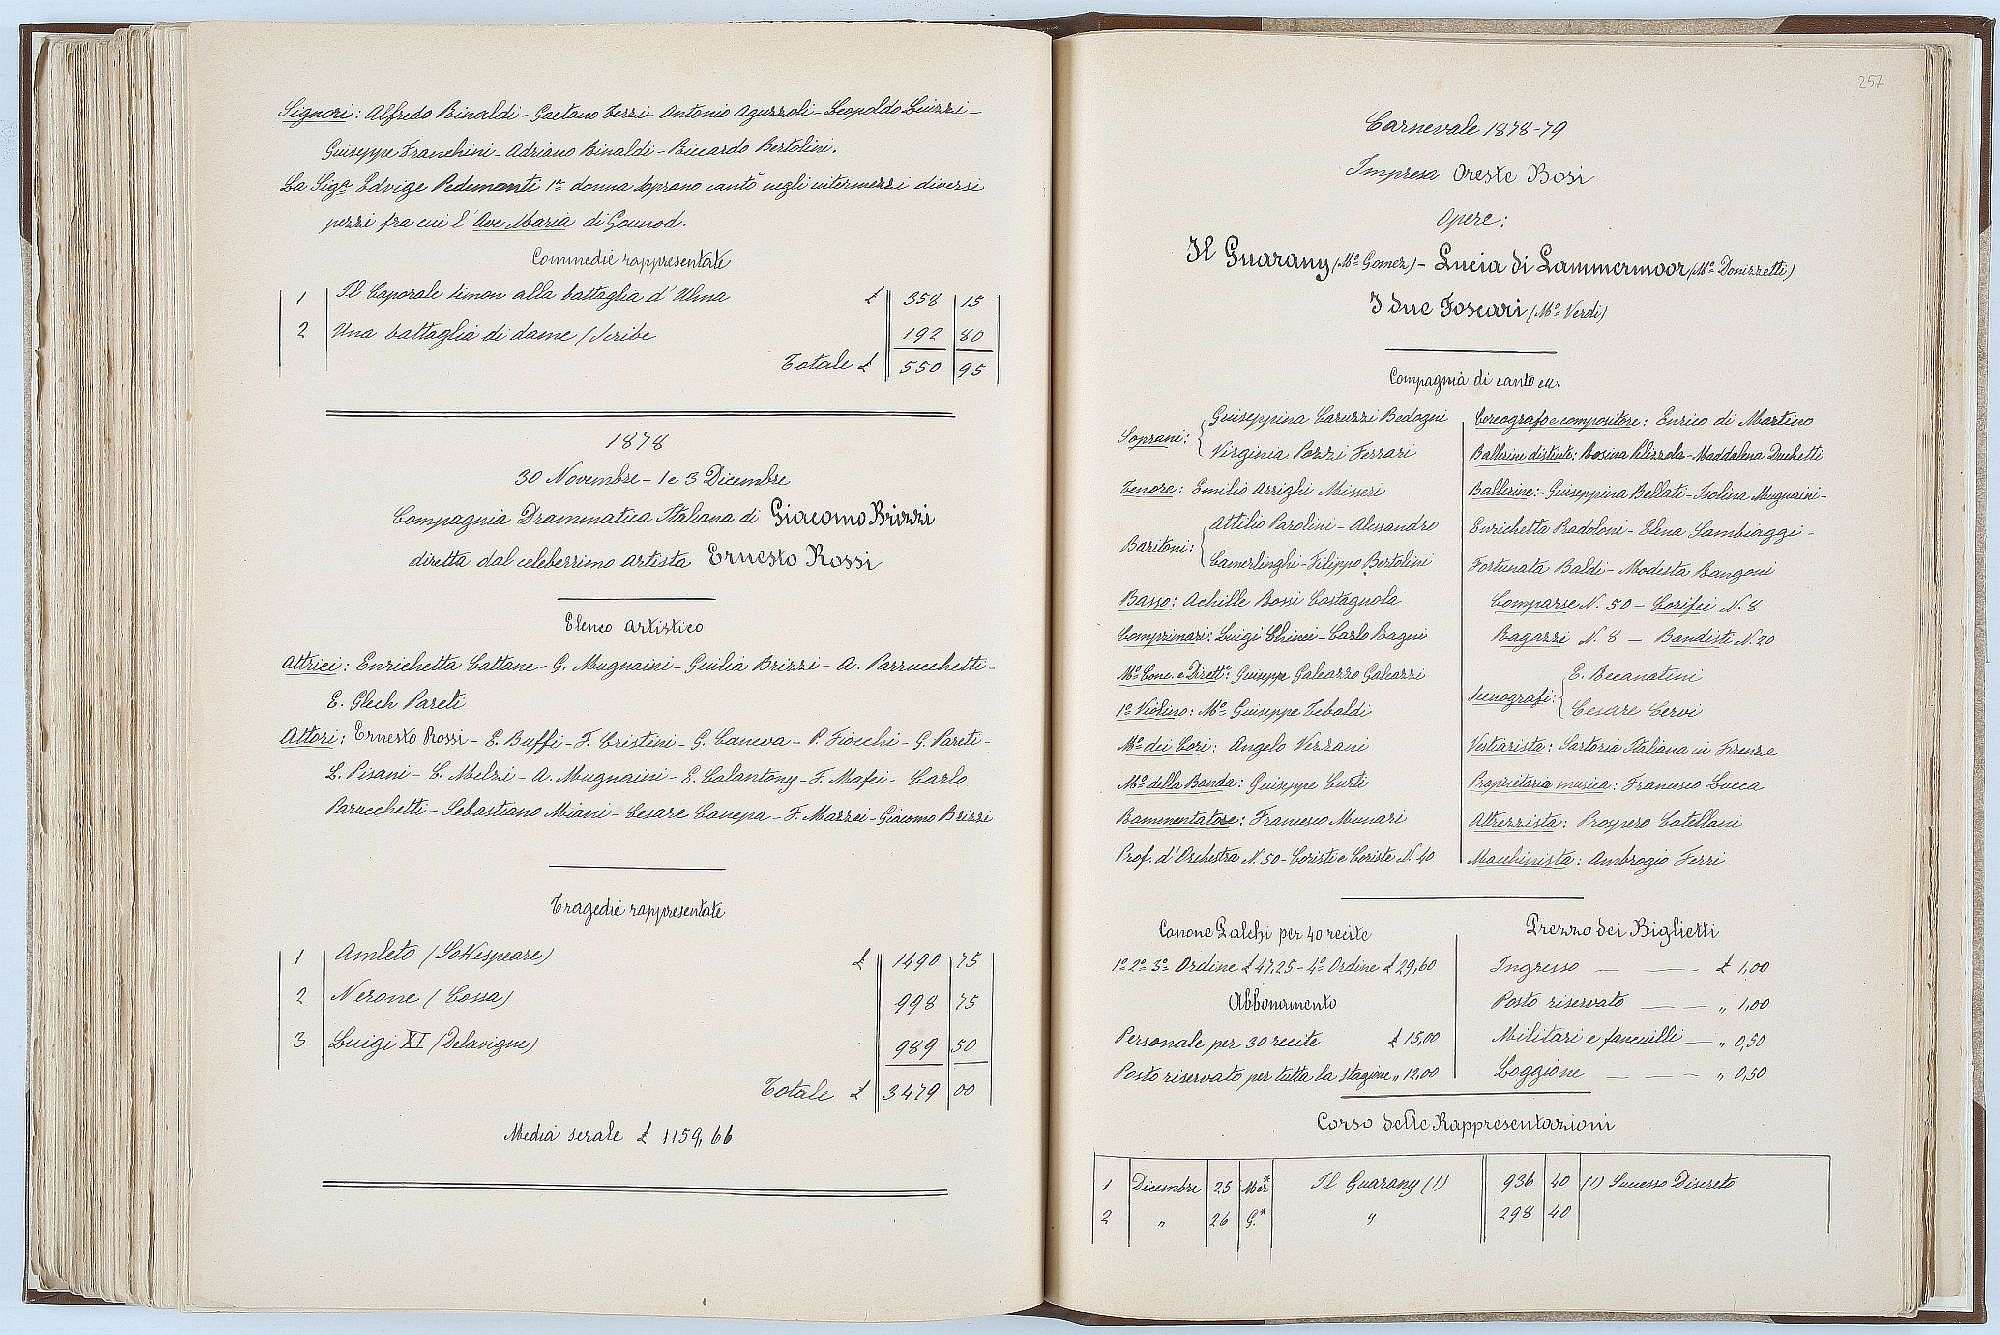 Signori: Alfredo Rinaldi - Gaetano Terzi - Antonio Aguzzoli - Leopoldo Guizzi -
Giuseppe Franchini - Adriano Rinaldi - Riccardo Bertolini.
La Sigª Edvige Pedemonti 1ª donna soprano cantò negli intermezzi diversi
pezzi fra cui l'Ave Maria di Gounod.
Commedie rappresentate
1 Il Caporale Simon alla battaglia d'Ulma £ 358 15
2 Una battaglia di dame (Scribe 192 80
Totale £ 550 95
1878
30 Novembre - 1 e 3 Dicembre
Compagnia Drammatica Italiana di Giacomo Brizzi
diretta dal celeberrimo artista Ernesto Rossi
Elenco artistico
Attrici: Enrichetta Cattane - G. Mugnaini - Giulia Brizzi - A. Parrucchetti -
E. Glech Pareti
Attori: Ernesto Rossi - E. Buffi - F. Cristini - G. Caneva - P. Fiocchi - G. Pareti -
L. Pisani - C. Melzi - A. Mugnaini - E. Calantony - F. Mafei - Carlo
Parucchetti - Sebastiano Miani - Cesare Canepa - F. Mazzei - Giacomo Brizzi
Tragedie rappresentate
1 Amleto (Sakespeare) £ 1490 75
2 Nerone (Cossa) 998 75
3 Luigi XI (Delavigne) 989 50
Totale £ 3479 00
Media serale £ 1159,66
257
Carnevale 1878-79
Impresa Oreste Bosi
Opere:
Il Guarany (Mº Gomez) - Lucia di Lammermoor (Mº Donizzetti)
I due Foscari (Mº Verdi)
Compagnia di canto ecc.
Soprani: Giuseppina Caruzzi Bedogni
Virginia Pozzi Ferrari
Tenore: Emilio Arrighi Misseri
Baritoni: Attilio Parolini - Alessandro
Camerlinghi - Filippo Bertolini
Basso: Achille Rossi Castagnola
Comprimari: Luigi Chinci - Carlo Bagni
Mº Conc. e Dirett.: Giuseppe Galeazzo Galeazzi
1º Violino: Mº Giuseppe Tebaldi
Mº dei Cori: Angelo Vezzani
Mº della Banda: Giuseppe Curti
Rammentatore: Francesco Munari
Prof. d'Orchestra N. 50 - Coristi e Coriste N. 40
Coreografo e compositore: Enrico di Martino
Ballerine distinte: Rosina Clizzola - Maddalena Duchetti
Ballerine: Guiseppina Bellati - Isolina Mugnaini -
Enrichetta Badoloni - Elena Sambiaggi -
Fortunata Baldi - Modesta Rangoni
Comparse N. 50 - Corifei N. 8
Ragazzi N. 8 - Bandisti N. 20
Scenografi: E. Recanatini
Cesare Cervi
Vestiarista: Sartoria Italiana in Firenze
Proprietaria musica: Francesco Lucca
Attrezzista: Prospero Catellani
Macchinista: Ambrogio Ferri
Canone Palchi per 40 recite
1º 2º 3º Ordine £ 47,25 - 4º Ordine £ 29,60
Abbonamento
Personale per 30 recite £ 15,00
Posto riservato per tutta la stagione „ 12,00
Prezzo dei Biglietti
Ingresso — — £ 1,00
Posto riservato — „ 1,00
Militari e fanciulli — „ 0,50
Loggione — — „ 0,50
Corso delle Rappresentazioni
1 Dicembre 25 Mer* Il Guarany (1) 936 40 (1) Successo Discreto
2 „ 26 G.* „ 298 40